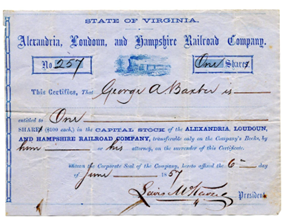 STATE OF VIRGINIA.
Alexandria, Loudoun, and Hampshire Railroad Company.
No 257 One Share
This Certifies, That George A Baxter is
entitled to One
SHARE ($100 each,) in the CAPITAL STOCK of the ALEXANDRIA, LOUDOUN,
AND HAMPSHIRE RAILROAD COMPANY, transferable only on the Company's Books, by
him his attorney, on the surrender of this Certificate.
Witness the Corporate Seal of the Company, hereto affixed the 6 day
of June 1857
Lewis McKenzie President